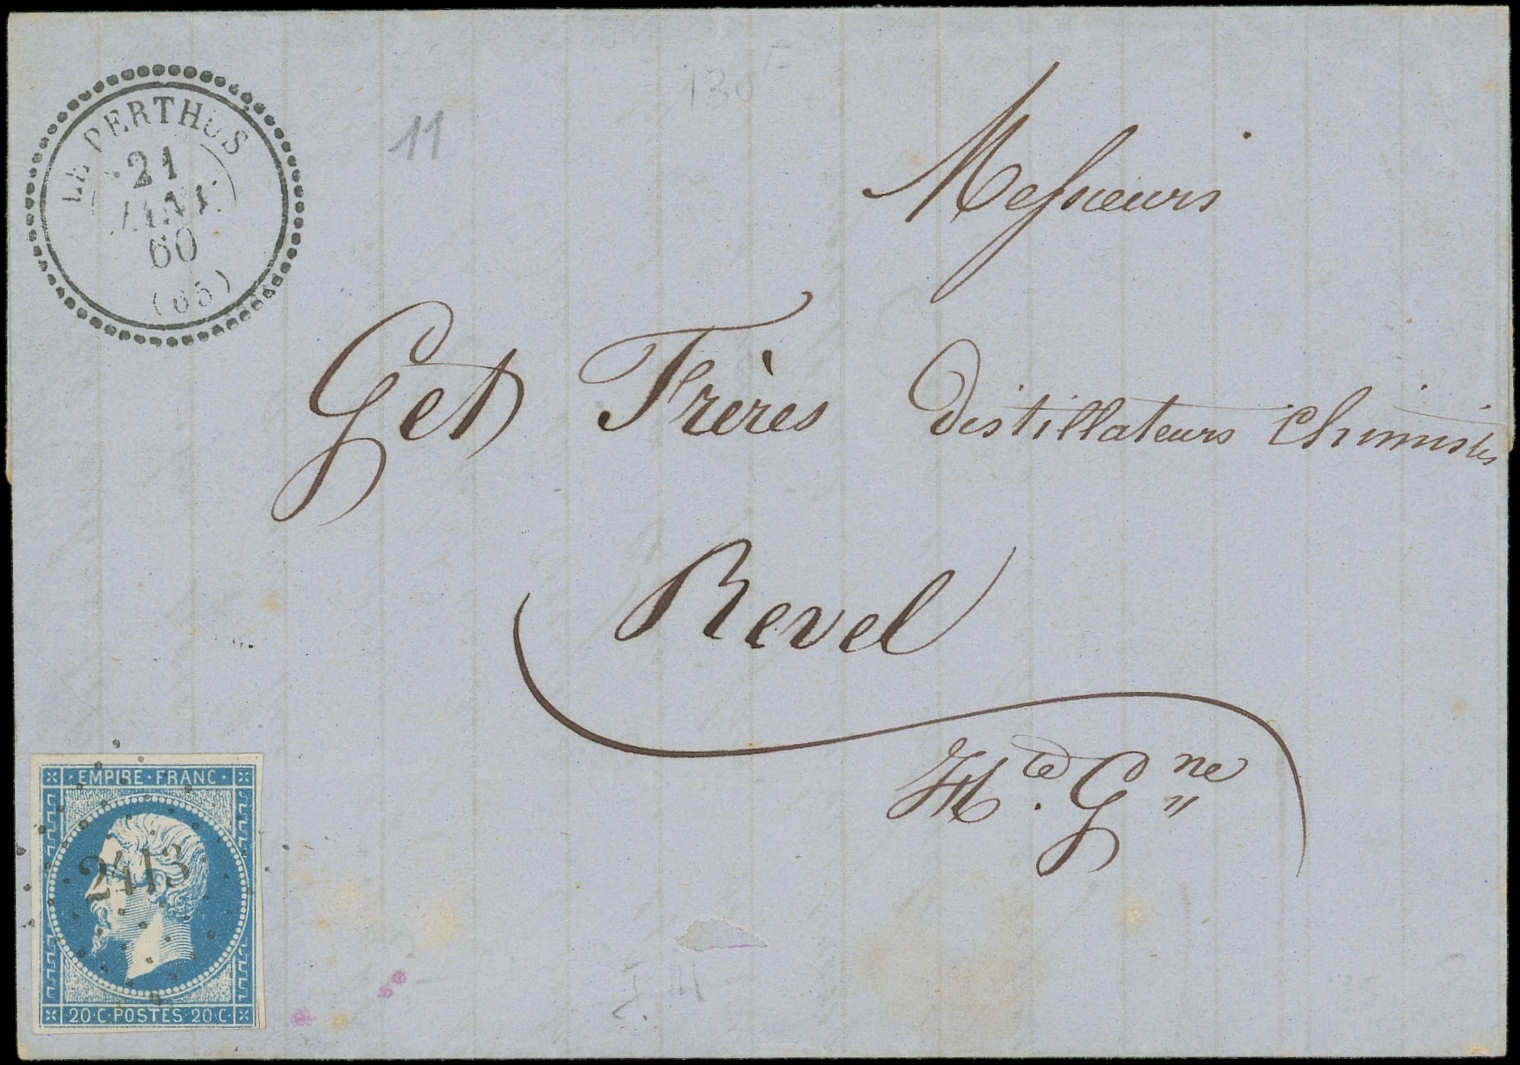 LE PERTHUS
21
MAI
60
(65)
11
130 F
Messieurs
Get Frères distillateurs chimistes
Revel
Hte. Gne
EMPIRE·FRANC·
2413
20·C·POSTES·20·C·